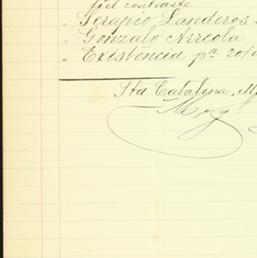 fiel contraste
" Serapio Landeros
" Gonzalo Arreola
" Existencia pª 20/
Sta Catalina, M
Migl